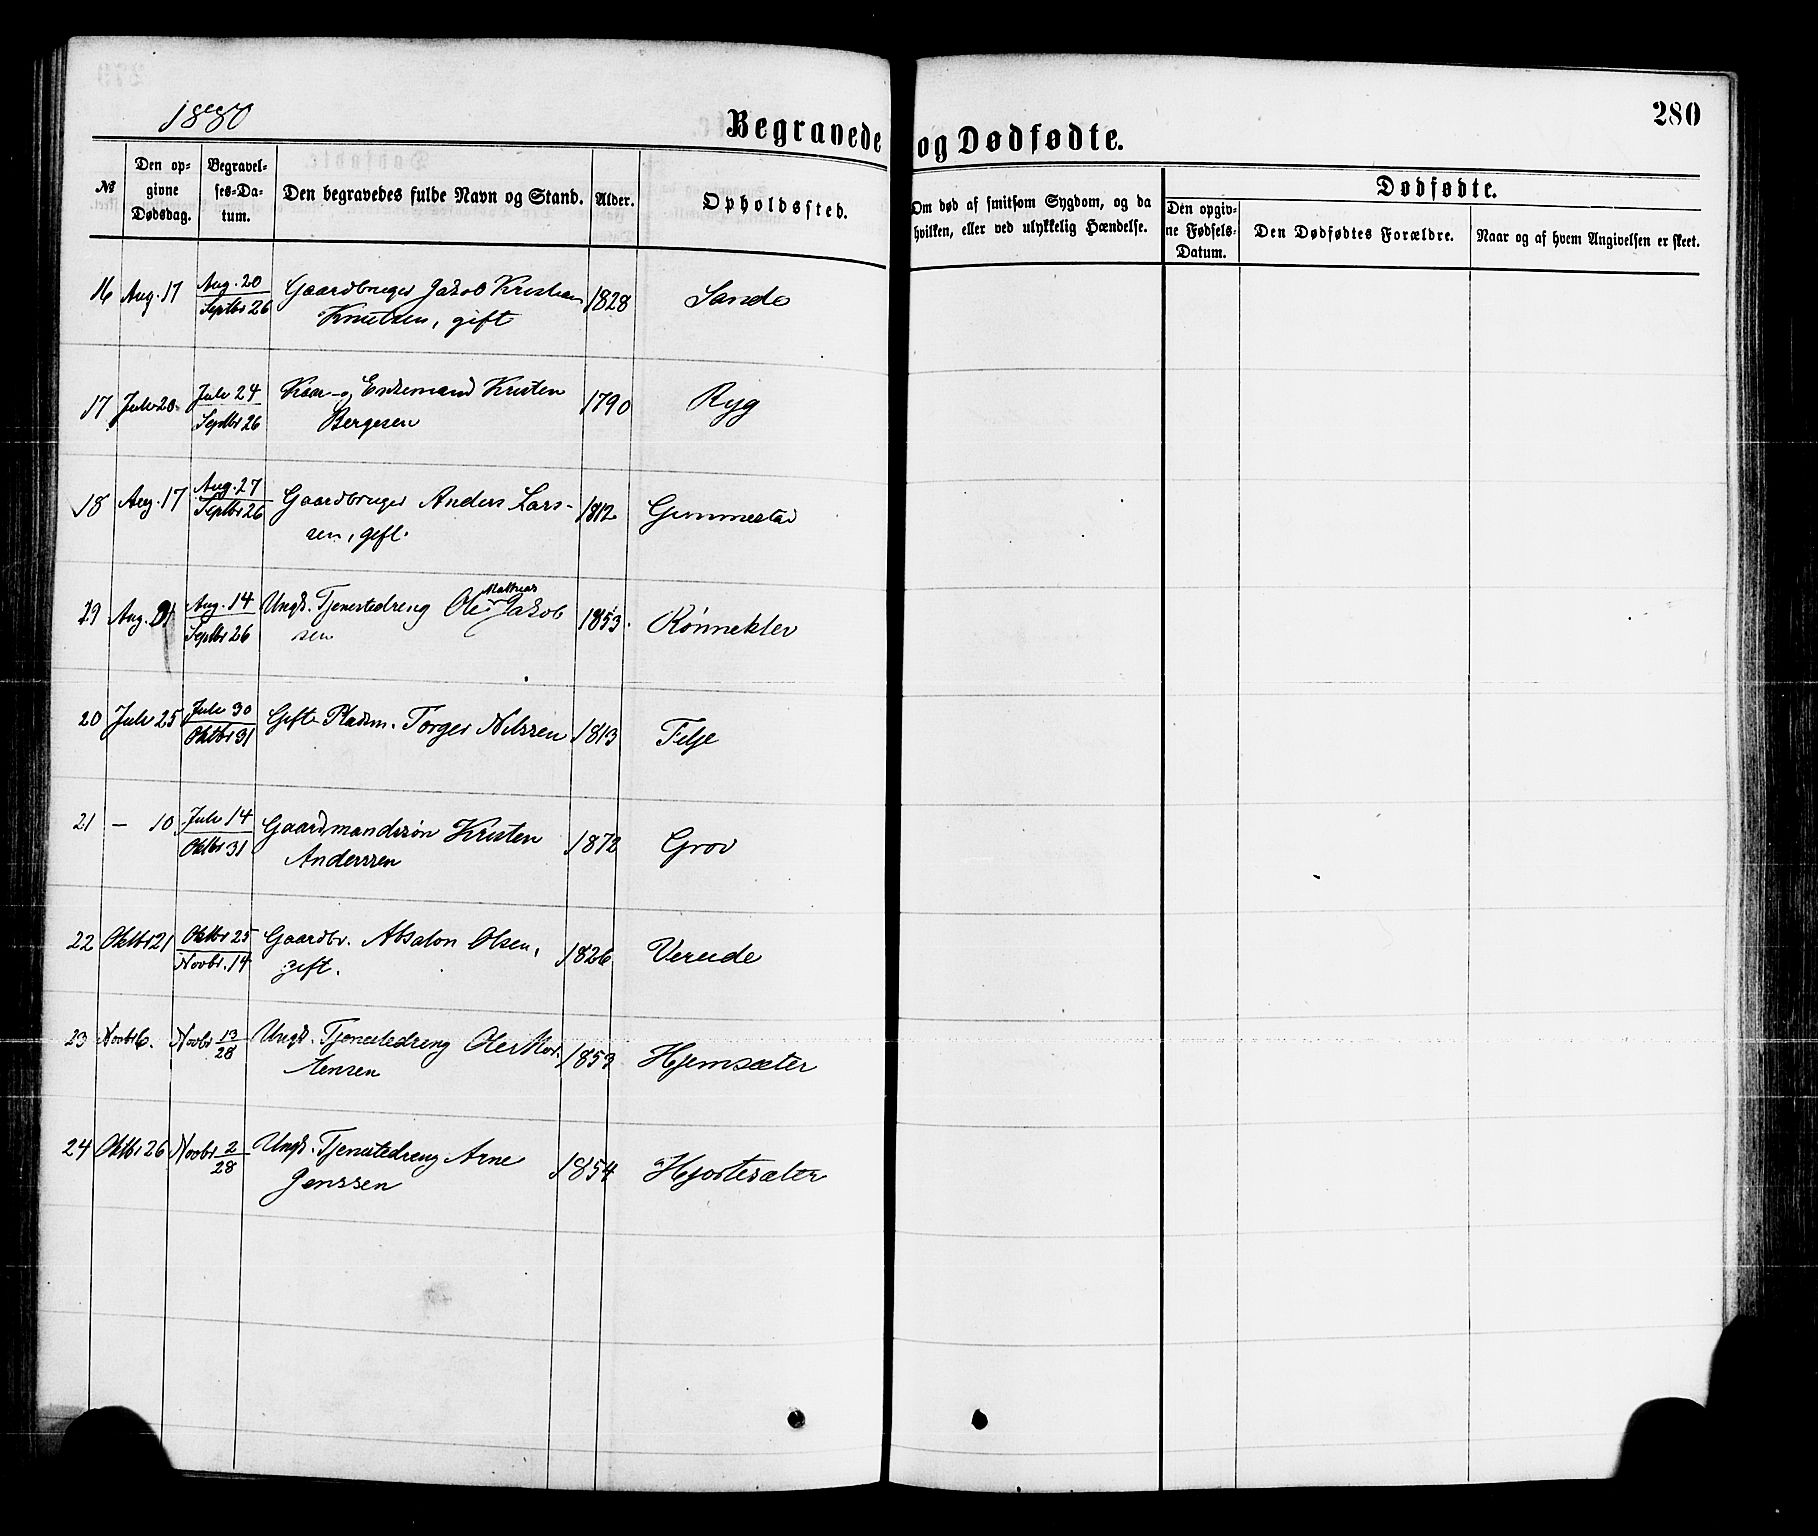 1880
Begravede og Dødfødte.
280
№
Den op-
givne
Dødsdag.
Begravel-
ses-Da-
tum.
Den begravedes fulde Navn og Stand.
Alder.
Opholdssted.
Om død af smitsom Sygdom, og da
hvilken, eller ved ulykkelig Hændelse.
Dødfødte.
Den opgiv-
ne Fødsels-
Datum.
Den Dødfødtes Forældre.
Naar og af hvem Angivelsen er skeet.
16 Aug. 17 Aug. 20 Gaardbruger Jakob Kristian 1828 Sande
Septbr 26 Knutsen, gift
17 Juli 20. Juli 24 Kaar- og Enkemand Kristen 1790 Ryg
Septbr 26 Bergesen
18 Aug. 17 Aug. 27 Gaardbruger Anders Lars- 1812 Gimmestad
Septbr 26 sen, gift.
Mathias
19 Aug. Aug. 14 Ungk. Tjenestedreng Ole Jakob 1853. Rønneklev
Septbr 26 sen
20 Juli 25 Juli 30 Gift Pladsm. Torger Nilssen 1813 Felje
Oktbr 31
21 — 10 Juli 14 Gaardmandssøn Kristen 1872 Grov
Oktbr 31 Anderssen
22 Oktbr 21 Oktbr 25 Gaardbr. Absalon Olsen, 1826 Vereide
Novbr. 14 gift.
23 Novbr 6. Novbr 13 Ungk. Tjenestedreng Ole Mor- 1853 Hjemsæter
28 tensen
24 Oktbr 26 Novbr 2 Ungk. Tjenestedreng Arne 1854 Hjortesæter
28 Jenssen